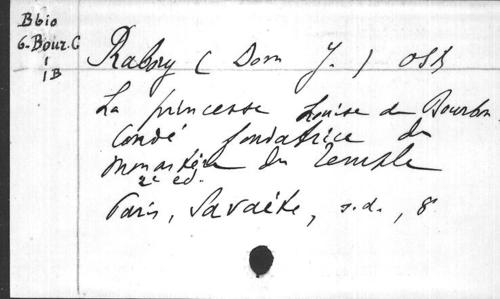 Bbio
6. Bour. C
1
1B
Rabory (Dom J.) OSB
La princesse Louise de Bourbon
Condé fondatrice du
monastère du Temple
2e ed.
Paris, Savaète, s.d., 8°